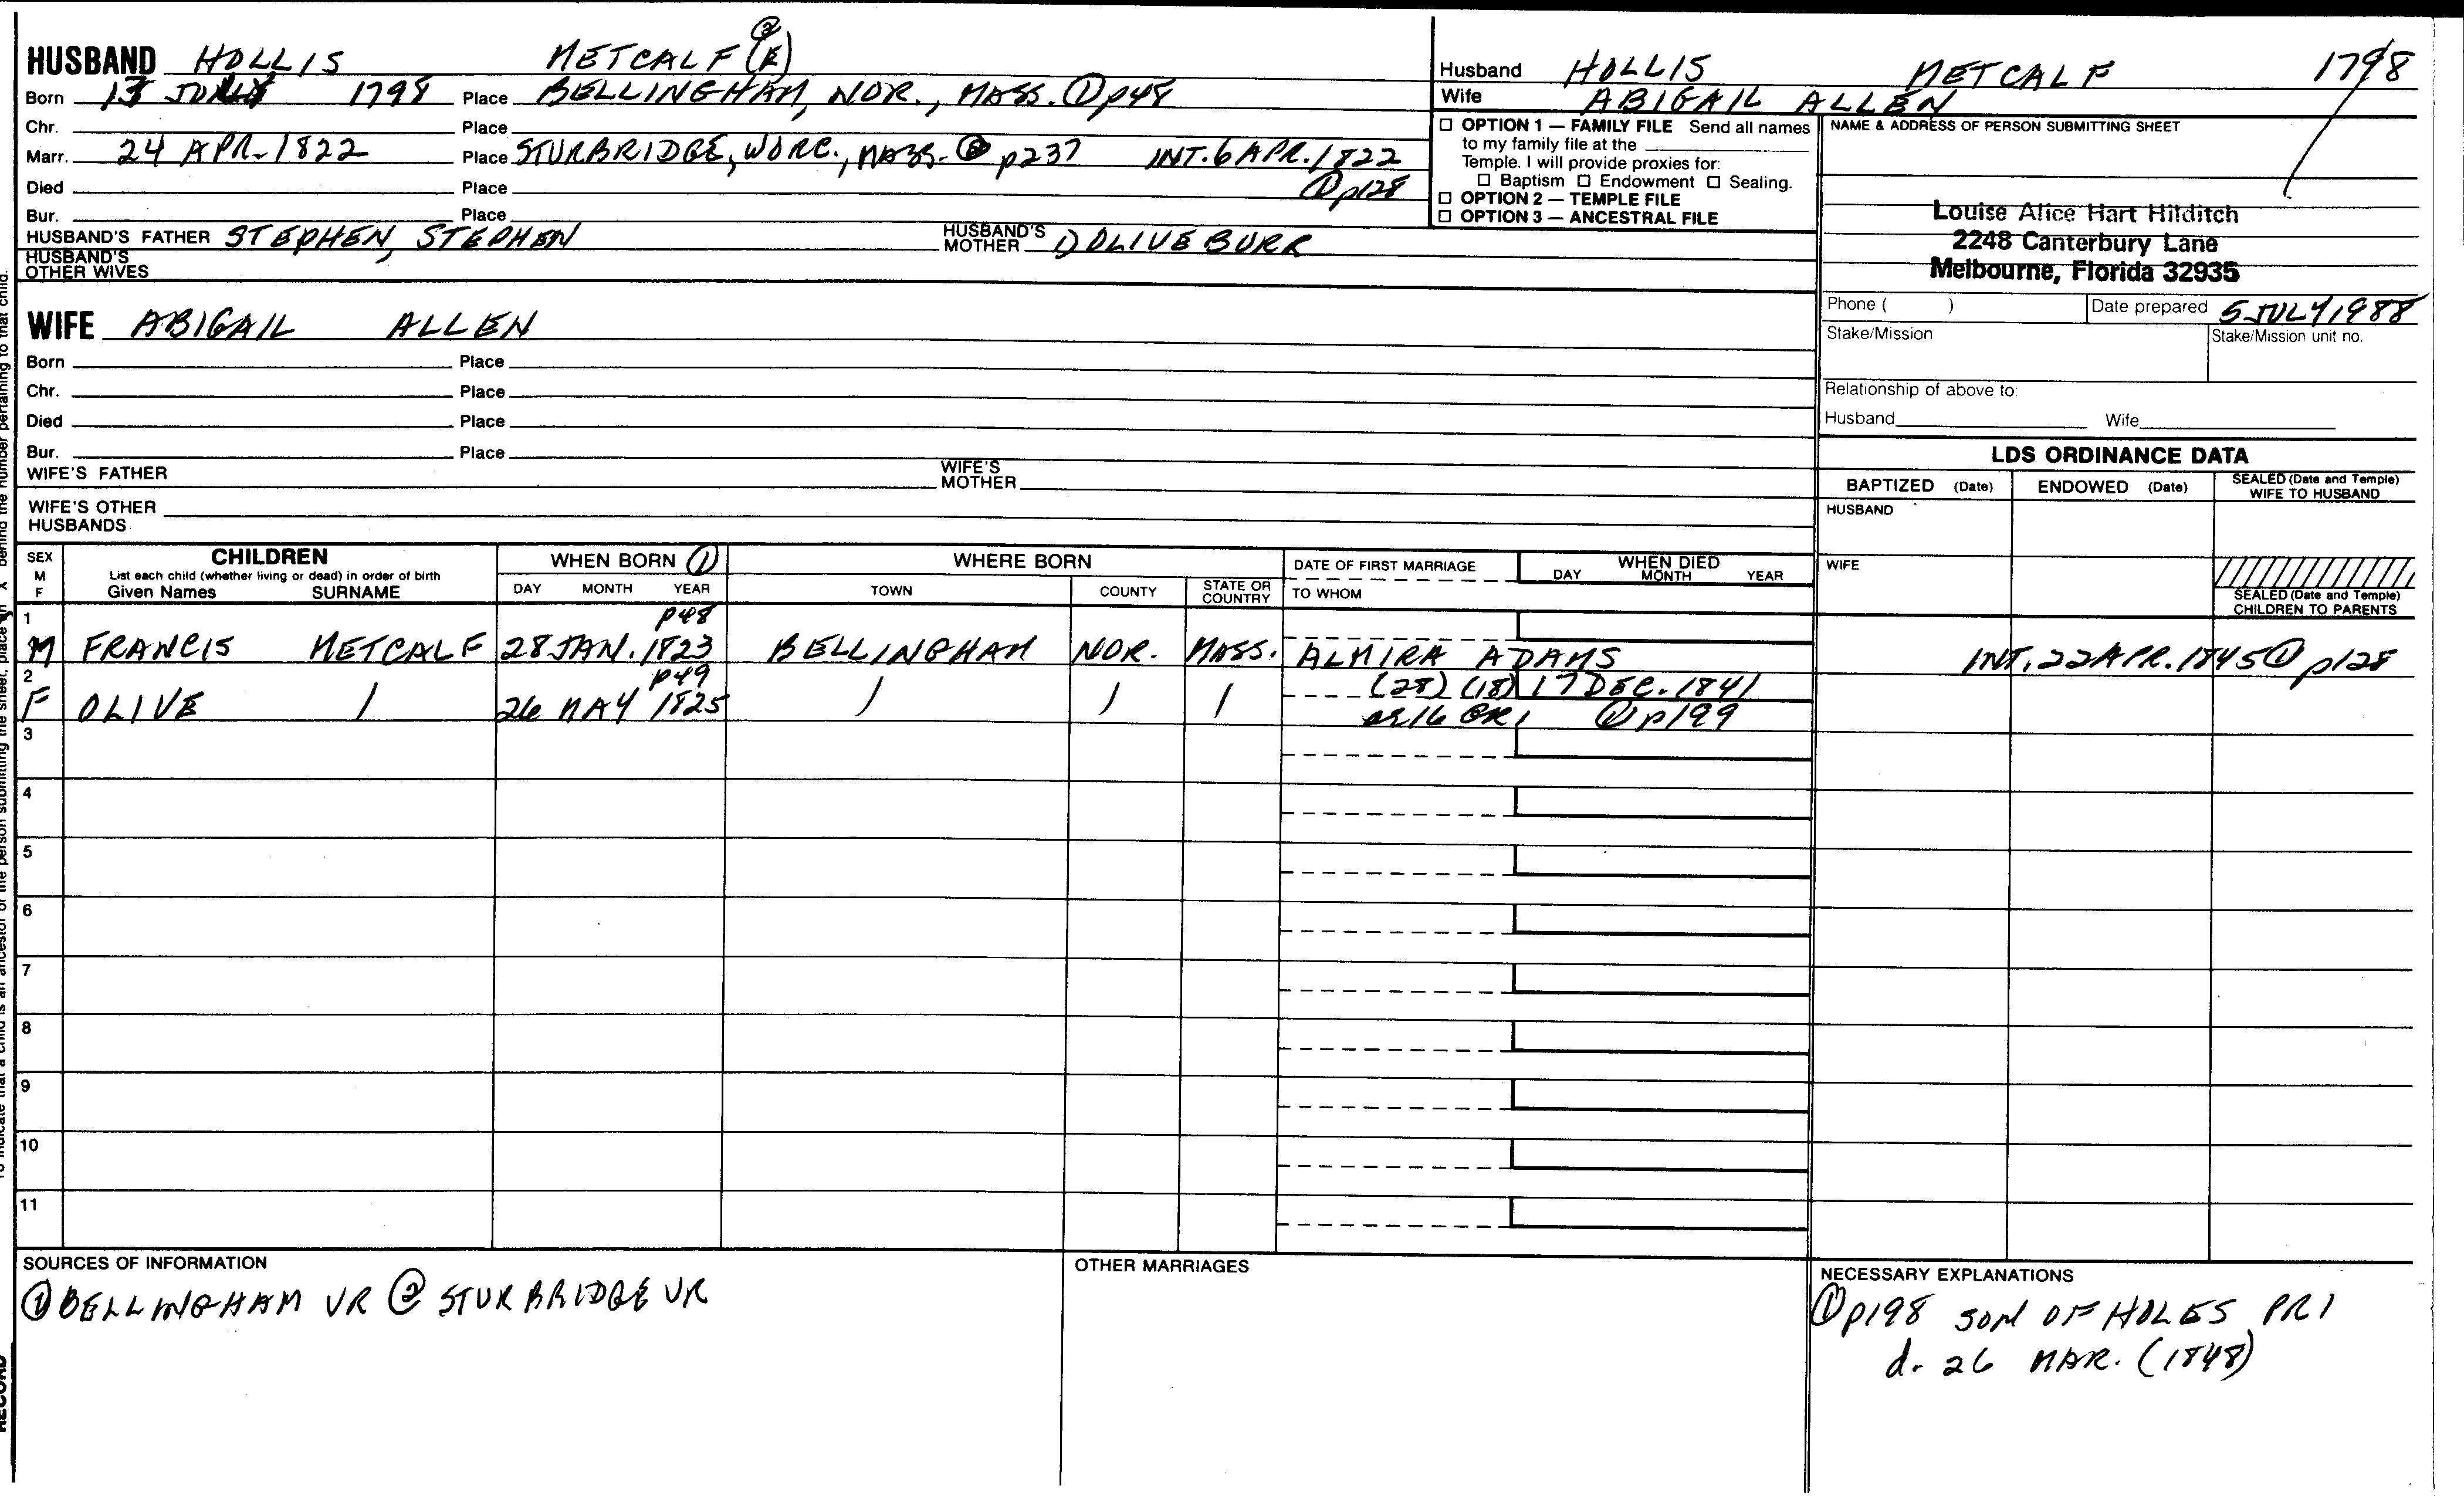 HUSBAND HOLLIS METCALF (K) ②
Born 13 1798 Place BELLINGHAM, NOR., MASS. ① p48
Chr. Place
Marr. 24 APR. 1822 Place STURBRIDGE, WORC., MASS. ② p237 INT. 6 APR. 1822
① p128
Died Place
Bur. Place
HUSBAND'S FATHER STEPHEN, STEPHEN HUSBAND'S MOTHER OLIVE BURR
HUSBAND'S OTHER WIVES
Husband HOLLIS METCALF 1798
Wife ABIGAIL ALLEN
☐ OPTION 1 — FAMILY FILE Send all names
to my family file at the
Temple. I will provide proxies for:
☐ Baptism ☐ Endowment ☐ Sealing.
☐ OPTION 2 — TEMPLE FILE
☐ OPTION 3 — ANCESTRAL FILE
NAME & ADDRESS OF PERSON SUBMITTING SHEET
Louise Alice Hart Hilditch
2248 Canterbury Lane
Melbourne, Florida 32935
Phone ( ) Date prepared 5 JULY 1988
Stake/Mission Stake/Mission unit no.
Relationship of above to:
Husband Wife
WIFE ABIGAIL ALLEN
Born Place
Chr. Place
Died Place
Bur. Place
WIFE'S FATHER WIFE'S MOTHER
WIFE'S OTHER HUSBANDS
LDS ORDINANCE DATA
BAPTIZED (Date) ENDOWED (Date) SEALED (Date and Temple) WIFE TO HUSBAND
HUSBAND
WIFE
SEALED (Date and Temple) CHILDREN TO PARENTS
SEX M F
CHILDREN
List each child (whether living or dead) in order of birth
Given Names SURNAME
WHEN BORN ①
DAY MONTH YEAR
WHERE BORN
TOWN COUNTY STATE OR COUNTRY
DATE OF FIRST MARRIAGE
TO WHOM
WHEN DIED
DAY MONTH YEAR
1 p48
M FRANCIS METCALF 28 JAN. 1823 BELLINGHAM NOR. MASS. ALMIRA ADAMS INT. 22 APR. 1845 ① p128
2 p49 (28) (18) 17 DEC. 1841
F OLIVE / 26 MAY 1825 / / / or 16 GR1 ① p199
3
4
5
6
7
8
9
10
11
SOURCES OF INFORMATION
① BELLINGHAM VR ② STURBRIDGE VR
OTHER MARRIAGES
NECESSARY EXPLANATIONS
① p198 SON OF HOLES PR1
d. 26 MAR. (1848)
RECORD